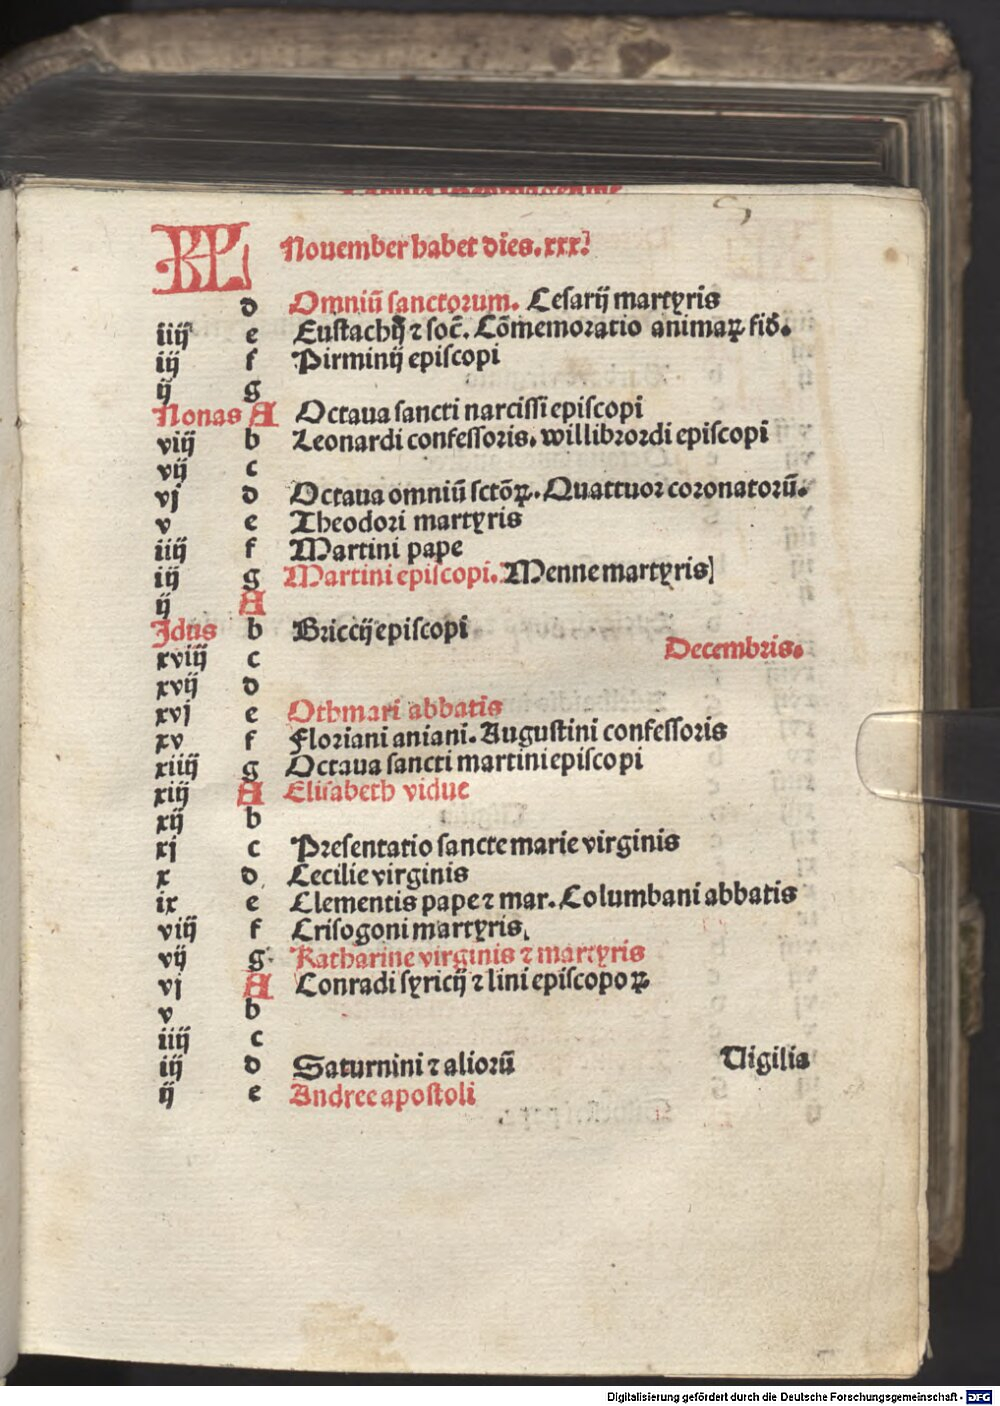 KL Nouember habet dies. xxx.
d Omniũ sanctorum. Cesarij martyris
iiij e Eustachij ⁊ soc̃. Cõmemoratio animaꝝ fid̃.
iij f Pirminij episcopi
ij g
Nonas A Octaua sancti narcissi episcopi
viij b Leonardi confessoris. willibrordi episcopi
vij c
vj d Octaua omniũ sctõꝝ. Quattuor coronatorũ.
v e Theodori martyris
iiij f Martini pape
iij g Martini episcopi. Menne martyris
ij A
Jdus b Briccij episcopi
xviij c Decembris.
xvij d
xvj e Othmari abbatis
xv f Floriani aniani. Augustini confessoris
xiiij g Octaua sancti martini episcopi
xiij A Elisabeth vidue
xij b
xj c Presentatio sancte marie virginis
x d Cecilie virginis
ix e Clementis pape ⁊ mar. Columbani abbatis
viij f Crisogoni martyris
vij g Katharine virginis ⁊ martyris
vj A Conradi syricij ⁊ lini episcopoꝝ
v b
iiij c
iij d Saturnini ⁊ aliorũ Vigilia
ij e Andree apostoli
Digitalisierung gefördert durch die Deutsche Forschungsgemeinschaft - DFG